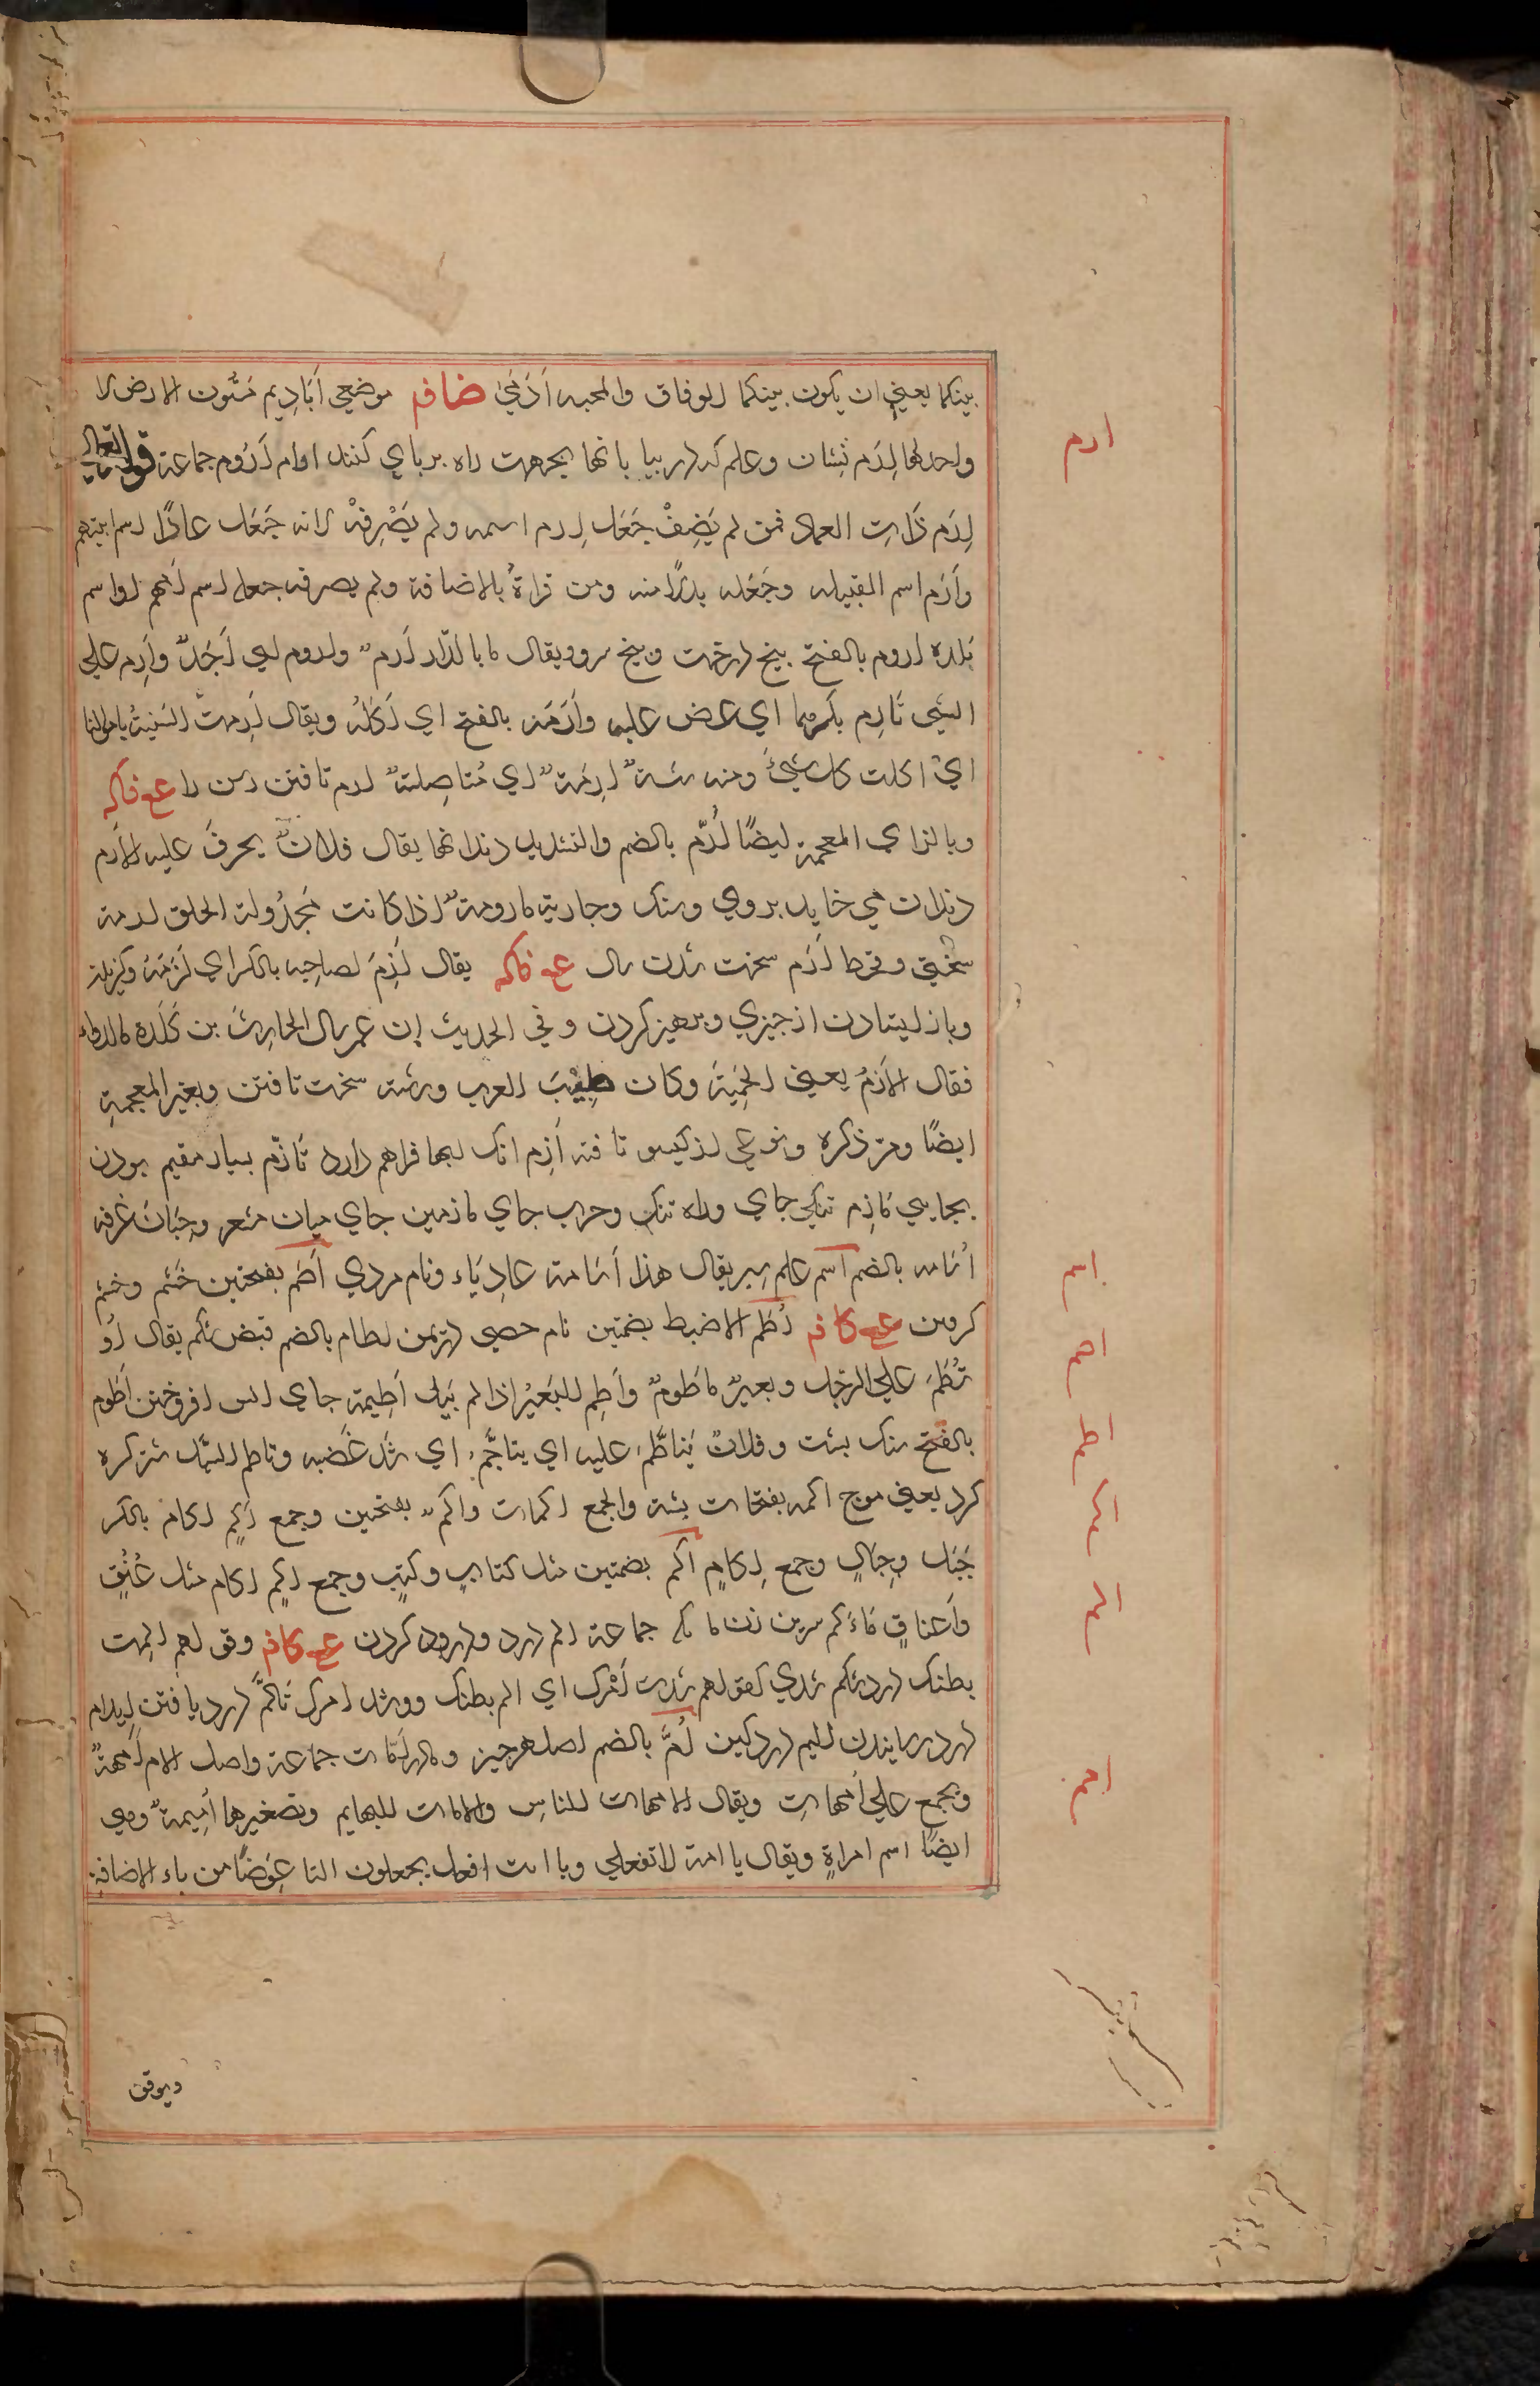 بينكما يعني ان يكون بينكما الوفاق والمحبه أَدَمَيٰ ضاف موضعي أَيَادِيم مَتُون الارض لا
ارم
واحد لها إِرَم نِشان وعلم که در بیابانها بجهت راه برپاي کنند ارام اُرُوم جماعة قوله تعالى
إِرَم ذَاتِ العماد فمن لم يَضِفْ جَعَل إِرم اسمه ولم يَصْرِفْهُ لانه جَعَل عادًا اسم ابيهم
وَإرَم اسم القبيله وجَعَله بدلًا منه ومن قراهُ بالاضافة ولم يصرفه جعله اسم أمهم او اسم
بلده اروم بالفتح بيخ درخت وبيخ سرو ويقال ما بالدّار أَرم واروم اي أَحَدٌ وأَرِم علي
الشي تأرم بكرهما اي عض عليه وأَرَمَه بالفتح اي أَكَلَهُ ويقال أَرِمت السَّنَةُ باموالنا
اي اكلت كل شيءٍ ومنه سَنةٌ ارِمَةٌ اي مُستاصِلةٌ ارم تافتن رسن را ع ف اكه
وبالزاي المعجمة ايضًا أُرَّم بالضم والتشديد دندانها يقال فلانٌ يحرق عليه الأُرم
دندان مي خايد بروي وسنك وجارية مارومةٌ اذا كانت مَجدُولة الخلق ازمة
سختي وقحط أَزَم سخت شدن سال ع ف اكه يقال أَزِمَ لصاحبه بالكسر اي لَزِمَهُ
وباز ايستادن از چيزي وپرهيز كردن وفي الحديث إن عمر سال الحارِثَ بن كَلَدة ما الدواء
فقال الأَزمُ يعني الحِمْيَةَ وكان طَبِيْبَ العرب ورشته سخت تافتن وبغير المعجمةِ
ايضًا ومرّ ذكره ونوعي از كيسو تافته أَزِم انك لبها فراهم دارد تَأزُّم بسيار مقيم بودن
بجايي مَأزِم تنكي جاي وراه تنك وحرب جاي مازمين جاي ميان مشعر
اسم
أُسَامه بالضم اسم علم شير يقال هذا أُسَامة عَادِيًا ونام مردي أَضَم بفتحتين خَشم وخشم
اضم
كرفتن ع ف اكه أُطُم الاضبط بضمتين نام حصي دريمن اطام بالضم قبض شكم يقال
اطم
تُطُمَ علي الرّجل وبعيرٌ ماطومٌ وأَطِم للبَعِيْر اذا لم يَبُل أَطِيمة جاي اتش افروختن أَطوم
بالفتح سنك پشت وفلانٌ يَتَأطَّم عليه اي يتاجَّم اي شدّ غَضَبه وتاطم السَّيل
اكم
كرد يعني موج اكمه بفتحات پشته والجمع اكمات واكم بفتحتين وجمع أَكَم اكام بالكسر
جَبَل وجِبَالٍ وجمع إِكامٍ أُكم بضمتين مثل كتابٍ وكُتُبٍ وجمع أُكُم اكام مثل عُنُقٍ
الم
وأَعناقٍ مَأكَم سرين زن ماكم جماعة الم درد ودرد كردن ع ف اكه وقولهم المت
بطنك درد شكم شدي كقولهم رشدت أَمْرك اي الم بطنك ورشد امرك تألُّم درد يافتن إيلام
امم
درد رسانيدن اليم درد كين أُمّ بالضم اصل هرچيز ومادر أُمَّات جماعة واصل الام أُمهةٌ
ويجمع علي أُمهاتٍ ويقال الامهات للناسِ والامات للبهايم وتصغيرها أُمِيمةٌ وهي
ايضًا اسم امراةٍ ويقال يا امة لا تفعلي ويا ابت افعل يجعلون التا عِوَضًا من ياء الاضافة
ويوقن